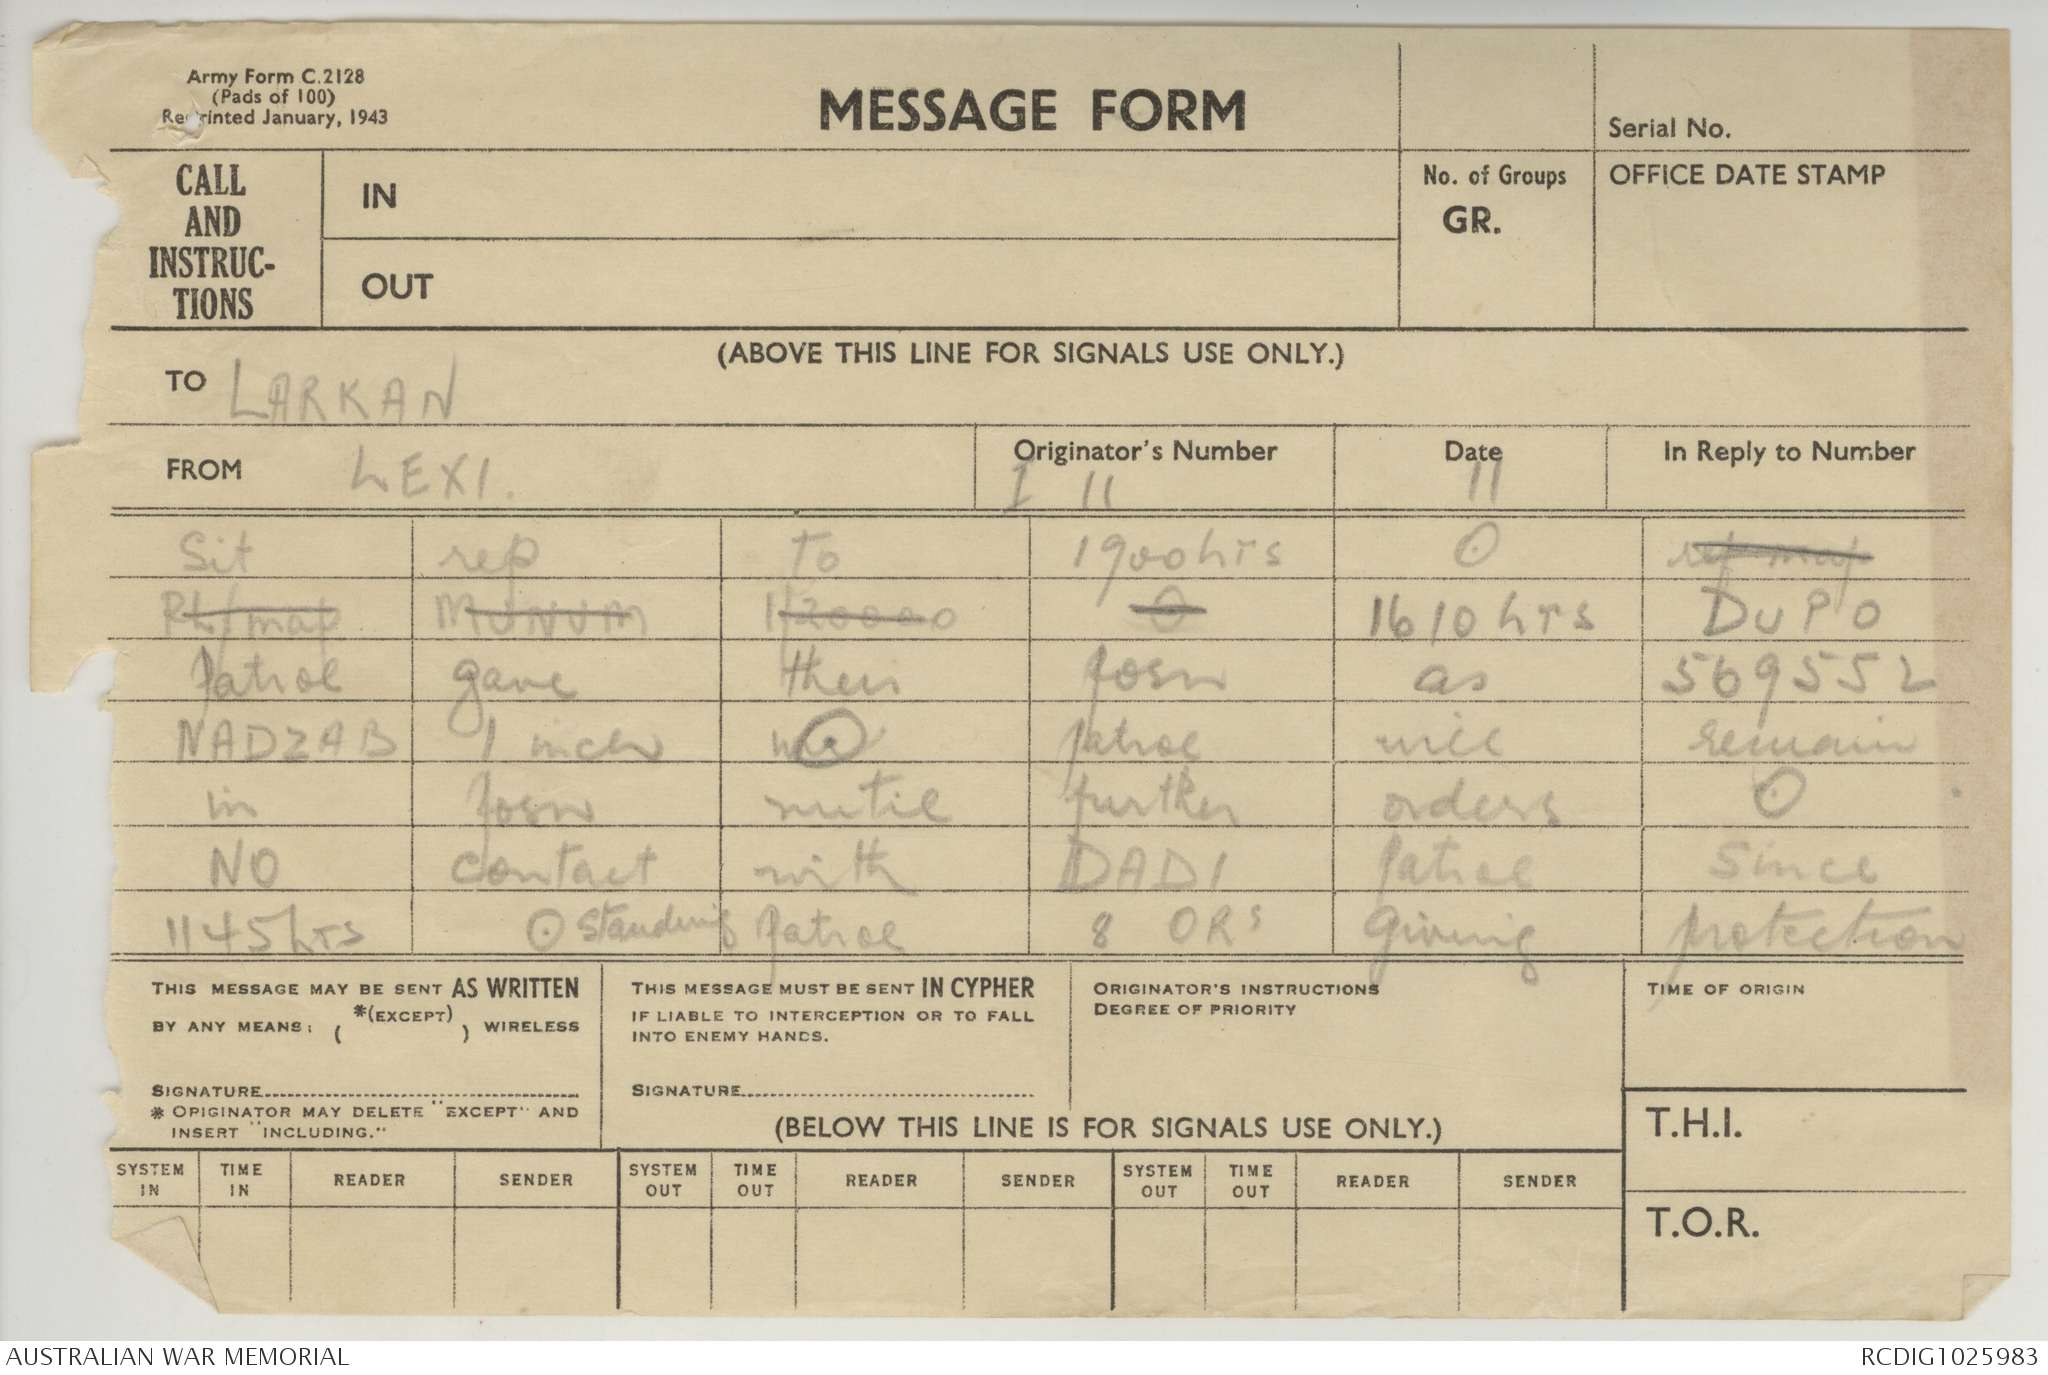 Army Form C.2128
(Pads of 100)
Reprinted January, 1943
MESSAGE FORM
Serial No.
CALL AND INSTRUC-TIONS
IN
No. of Groups
GR.
OFFICE DATE STAMP
OUT
(ABOVE THIS LINE FOR SIGNALS USE ONLY.)
TO LARKAN
FROM LEXI. Originator's Number I 11 Date 11 In Reply to Number
Sit rep To 1900hrs ⊙ ref map
Ref map MUNUM 1/20000 ⊙ 1610hrs DUPO
patrol gave their posn as 569552
NADZAB 1 inch ⊙ patrol will remain
in posn until further orders ⊙
NO contact with DADI patrol since
1145hrs ⊙ Standing patrol 8 ORs giving protection
THIS MESSAGE MAY BE SENT AS WRITTEN
BY ANY MEANS: ( *(EXCEPT) ) WIRELESS
SIGNATURE
* OPIGINATOR MAY DELETE "EXCEPT" AND
INSERT "INCLUDING."
THIS MESSAGE MUST BE SENT IN CYPHER
IF LIABLE TO INTERCEPTION OR TO FALL
INTO ENEMY HANDS.
SIGNATURE
ORIGINATOR'S INSTRUCTIONS
DEGREE OF PRIORITY
TIME OF ORIGIN
(BELOW THIS LINE IS FOR SIGNALS USE ONLY.)
T.H.I.
SYSTEM IN TIME IN READER SENDER SYSTEM OUT TIME OUT READER SENDER SYSTEM OUT TIME OUT READER SENDER
T.O.R.
AUSTRALIAN WAR MEMORIAL RCDIG1025983